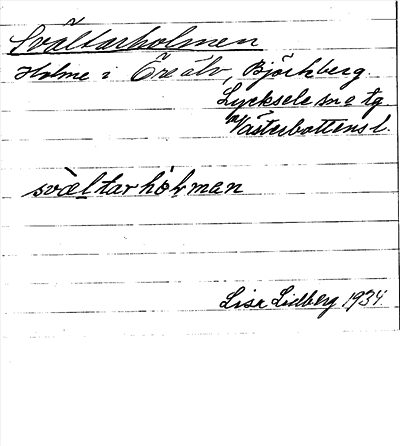 Svältarholmen
Holme i Öreälv, Björkberg.
Lycksele sn o tg
Västerbottens l.
svältarhòlman
Lisa Lidberg 1934.